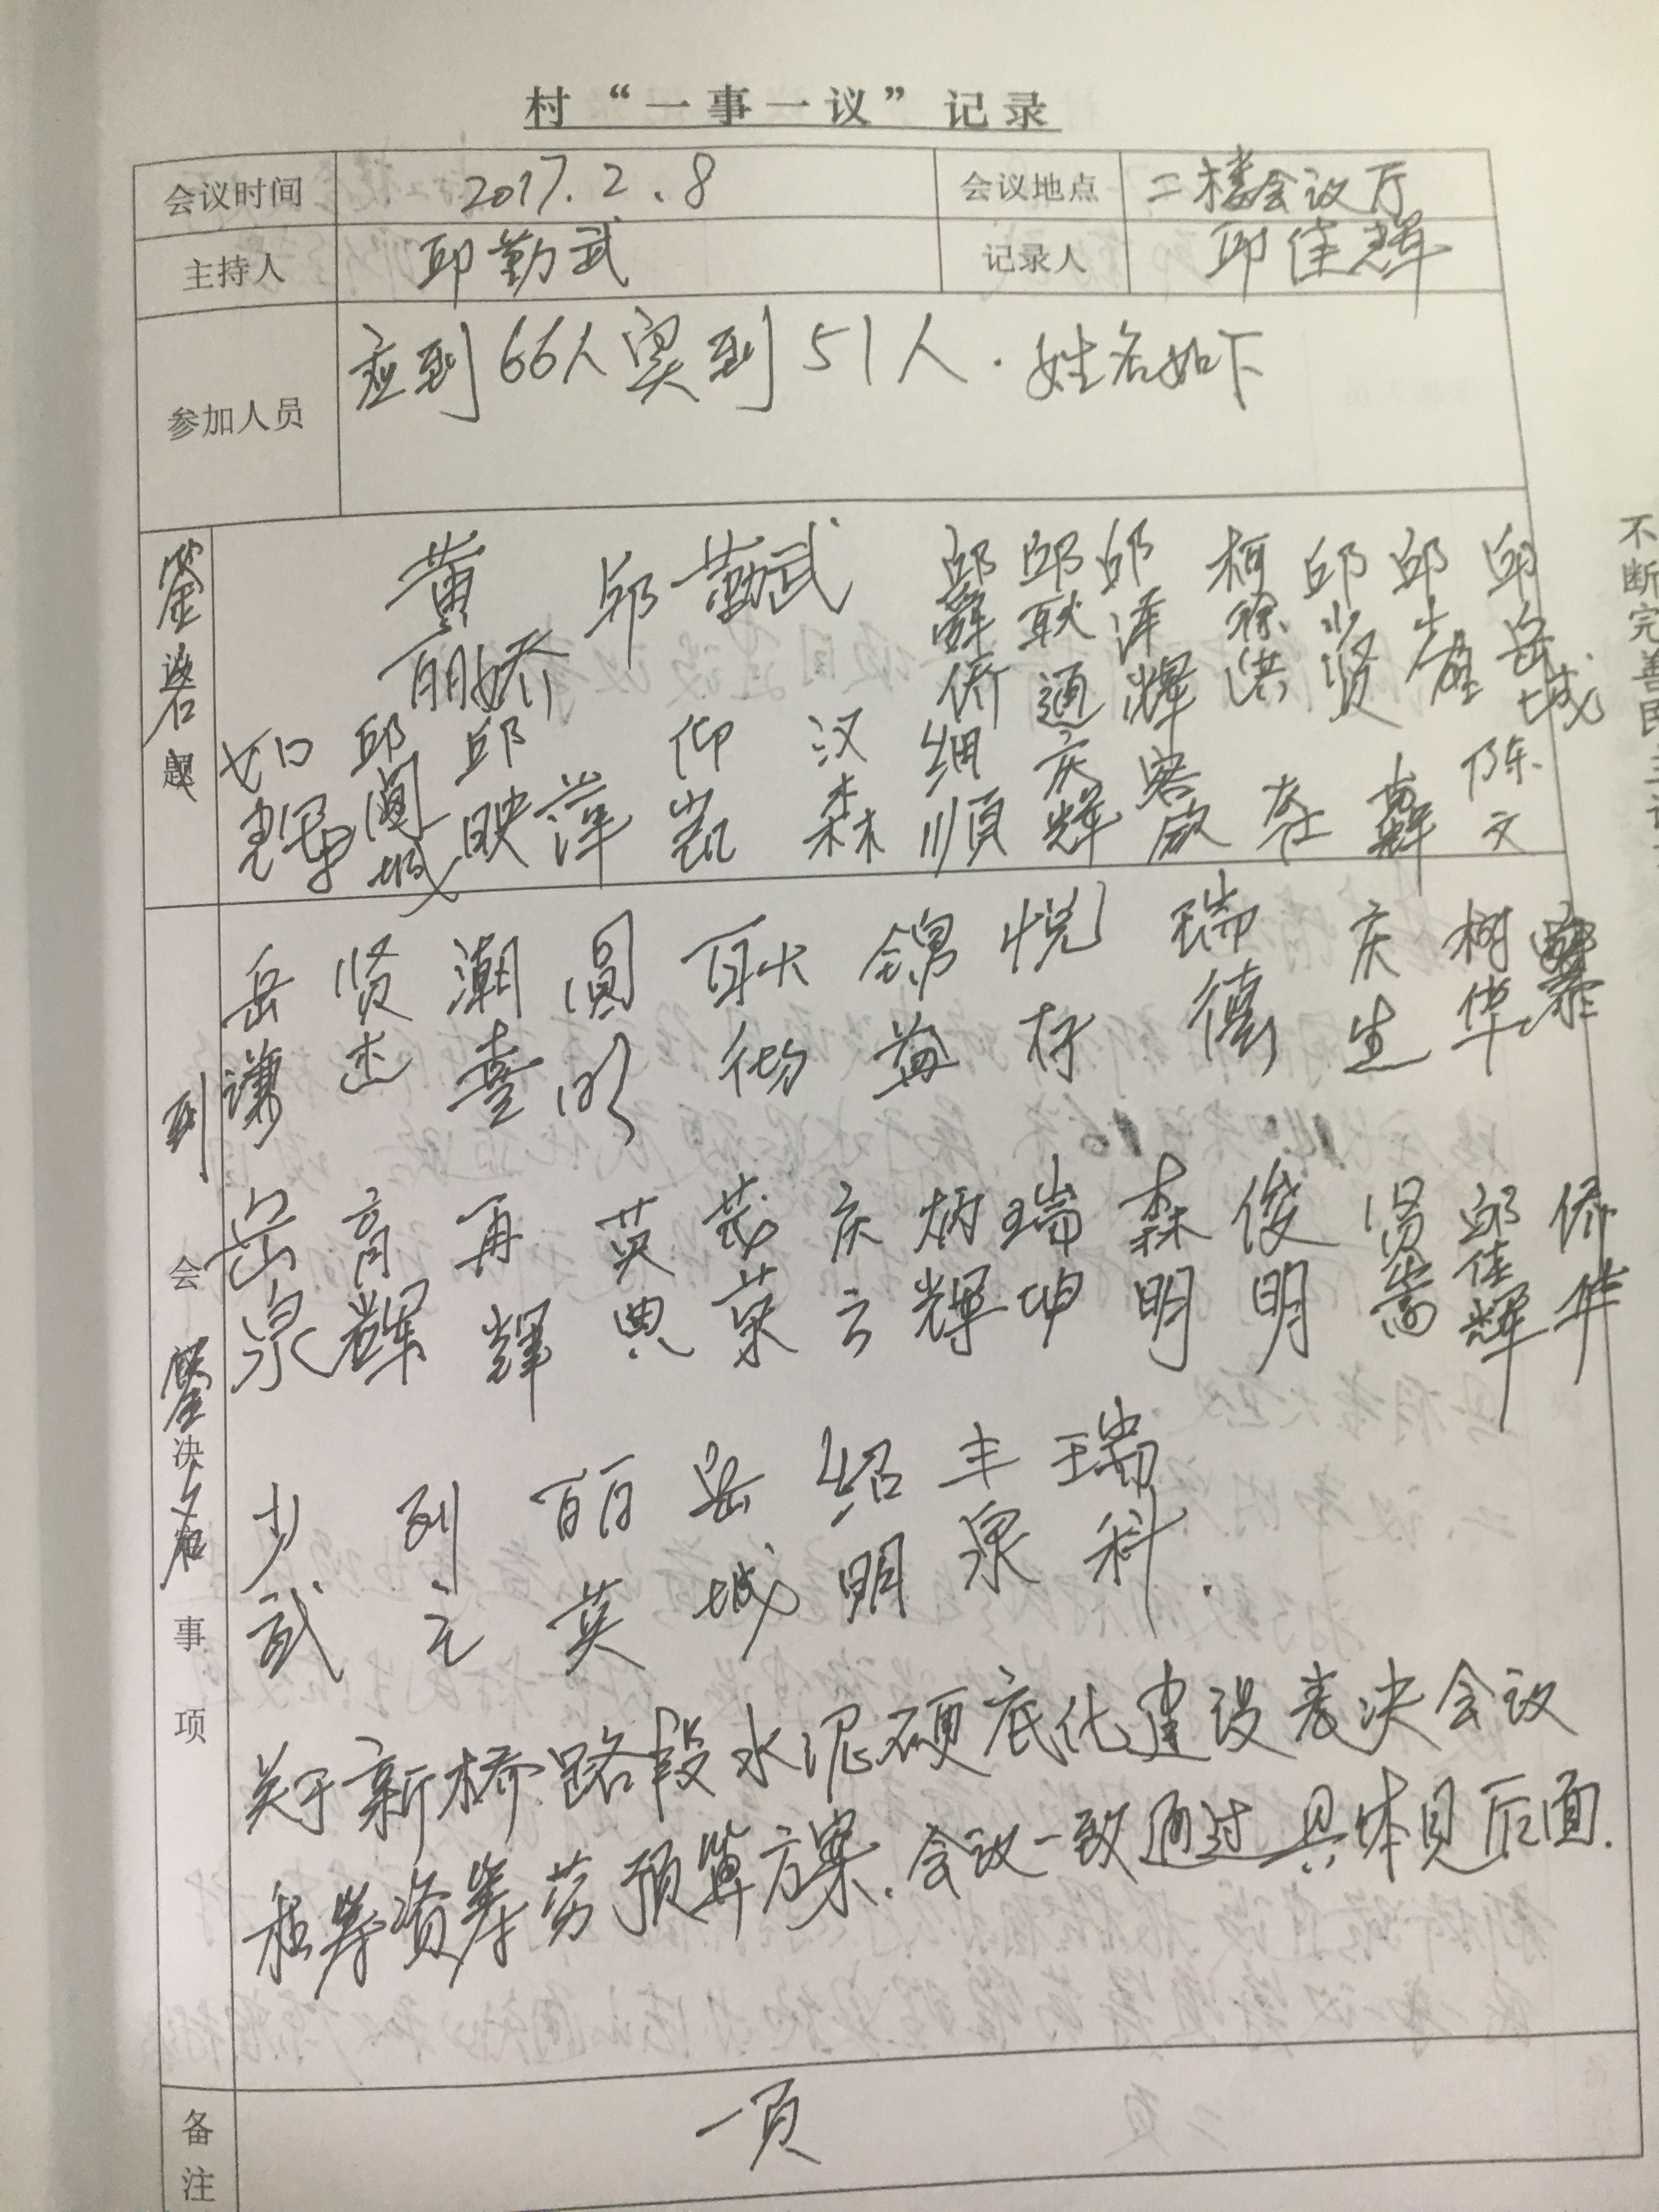 村“一事一议”记录
会议时间 2017.2.8 会议地点 二楼会议厅
主持人 邱勤武 记录人 邱佳辉
参加人员 应到66人实到51人.姓名如下
签
题
到
会
签
决
名
事
项
黄丽娇 邱勤武 邱 侨 邱耿通 邱泽辉 柯 洪 邱少贤 邱少雄 邱岳城
邱 城 邱映萍 仰凯 汉森 细顺 庆辉 陈文
岳谦 贤杰 潮喜 圆明 耿 锦益 悦 瑞德 庆生 树华
岳泉 育辉 再辉 英典 茂荣 庆云 炳辉 瑞坤 森明 俊明 贤嵩 邱佳辉 侨华
少武 列之 丽英 岳城 绍明 丰泉 瑞科.
关于新桥路段水泥硬底化建设表决会议
和筹资筹劳预算方案.会议一致通过具体见后面.
备注 一页
不断完善民主